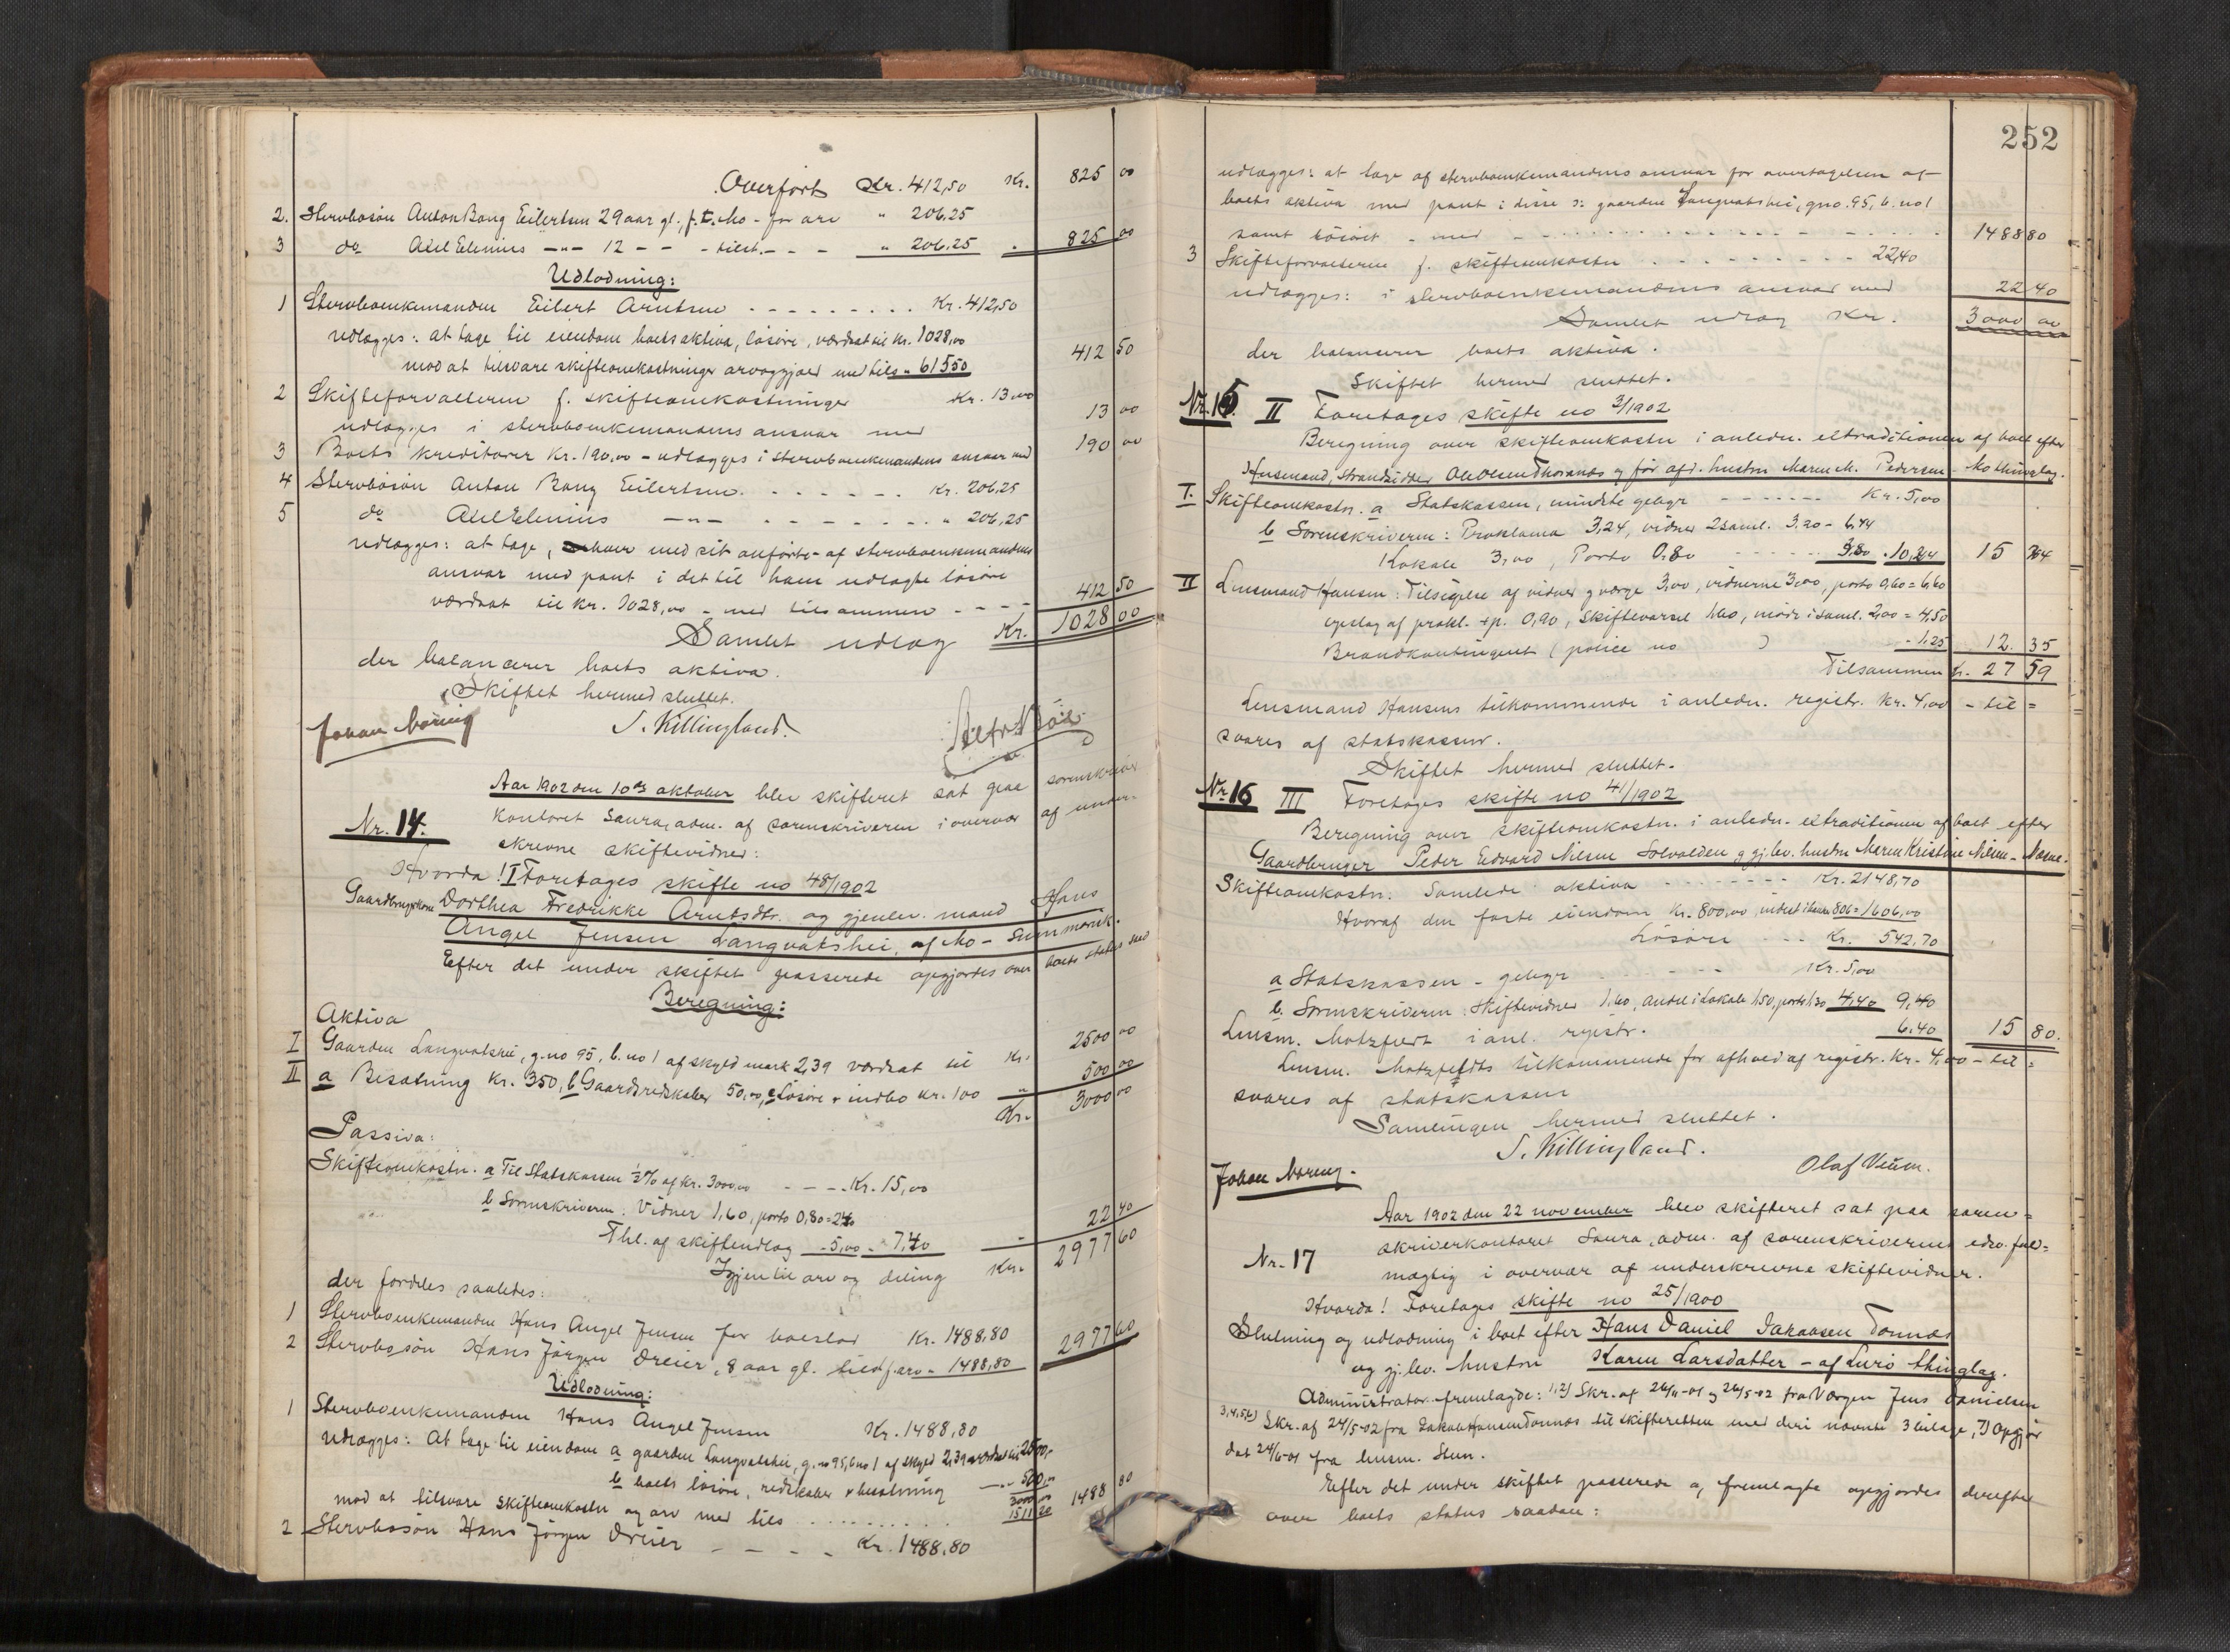 Overført Kr. 412,50 Kr. 825 00
2. Stervbosøn Anton Bang Eilertsen 29 aar gl., f. t. Mo - for arv " 206.25
3 do Axel Elenius —"— 12 - - - tilst. - - - " 206.25 " 825 00
Udlodning:
1 Stervboenkemanden Eilert Arntsen . . . . . . . . . Kr. 412,50
udlægges: at tage til eiendom boets aktiva, løsøre, værdsat til Kr. 1028,00
mod at tilsvare skifteomkostninger arv og gjæld med tils. " 615 50 412 50
2 Skifteforvalteren f. skifteomkostninger Kr. 13,00
udlægges i stervboenkemandens ansvar med 13 00
3 Boets kreditorer Kr. 190,00 - udlægges i stervboenkemandens ansvar med 190 00
4 Stervbosøn Anton Bang Eilertsen . . . . . . Kr. 206,25
5 do Axel Elenius —"— . . . . . . . " 206,25
udlægges: at tage, enhver med sit anførte - af stervboenkemandens
ansvar med pant i det til ham udlagte løsøre
værdsat til Kr. 1028,00 - med tilsammen - - - - 412 50
Samlet udlæg Kr. 1028 00
der balancerer boets aktiva.
Skiftet hermed sluttet.
Johan Noreng S. Killingland.
Aar 1902 den 10de oktober blev skifteret sat paa sorenskriver
Nr. 14. kontoret Saura, adm. af sorenskriveren i overvær af under-
skrevne skiftevidner:
Hvorda! I Foretages skifte no 48/1902
Gaardbrugerkone Dorthea Fredrikke Arntsdtr. og gjenlev. mand Hans
Angel Jensen Langvatshei, af Mo -
Efter det under skiftet passerede opgjordes over boets status med
Beregning:
Aktiva
I Gaarden Langvatshei, g. no 95, b. no 1 af skyld mark 2,39 værdsat til Kr. 2500 00
II a Besætning Kr. 350, b Gaardsredskaber 50,00, c Løsøre & indbo Kr. 100 " 500 00
Kr. 3000 00
Passiva:
Skifteomkostn. a Til Statskassen ½ % af Kr. 3000,00 - - - - Kr. 15,00
b Sorenskriveren: Vidner 1,60, porto 0,80 = 2,40
Thl. af skifteudlæg - 5,00 - " 7,40 - 22 40
Igjen til arv og deling Kr. 2977 60
der fordeles saaledes:
1 Stervboenkemanden Hans Angel Jensen for boeslod Kr. 1488,80
2 Stervbosøn Hans Jörgen Dreier, 8 aar gl. tilst. f. arv " 1488,80 2977 60
Udlodning:
1 Stervboenkemanden Hans Angel Jensen Kr. 1488,80
udlægges: At tage til eiendom a gaarden Langvatshei, g. no 95, b. no 1 af skyld 2,39 værdsat til 2500,-
b boets løsøre, redskaber & besætning —"— 500,00
3000 00
mod at tilsvare skifteomkostn og arv med tils . . . . . . . . . 1511 20 1488 80
2 Stervbosøn Hans Jörgen Dreier - - - - Kr. 1488,80
252
udlægges: at tage af stervboenkemandens ansvar for overtagelsen af
boets aktiva med pant i disse o: gaarden Langvatshei, gno. 95, b. no 1
samt løsøret - med - - - - - - - - - - - 1488 80
3 Skifteforvalteren f. skifteomkostn . . . . . . . . . 22,40
udlægges: i stervboenkemandens ansvar med 22 40
Samlet udlæg Kr. 3000 00
der balancerer boets aktiva.
Skiftet hermed sluttet.
Nr. 15. II Foretages skifte no 3/1902
Beregning over skifteomkostn i anledn. extraditionen af boet efter
Husmand, Strandsidder Ole Olsen og før afd. hustru Maren M. Pedersen - Mo thinglag.
I. Skifteomkostn. a Statskassen, mindste gebyr - - - - - - - Kr. 5,00
b Sorenskriveren: Proklama 3,24, vidner 2 saml. 3,20 - 6,44
Lokale 3,00, Porto 0,80 - - - - - - 3,80 " 10,24 15 24
II Lensmand Hansen: Tilsigelse af vidner & værge 3,00, vidnerne 3,00, porto 0,60 = 6,60
opslag af prokl. + p. 0,90, Skiftevarsel 1,60, møde i saml. 2,00 = 4,50
Brandkontingent (police no ) - 1,25 12. 35
Tilsammen Kr. 27 59
Lensmand Hansens tilkommende i anledn. registr. Kr. 4,00 - til=
svares af statskassen.
Skiftet hermed sluttet.
Nr. 16 III Foretages skifte no 41/1902
Beregning over skifteomkostn. i anledn. extraditionen af boet efter
Gaardbruger Peder Edvard Nilsen Solvolden & gj. lev. hustru Maren Kristine Nilsen - Næsne.
Skifteomkostn. Samlede aktiva - - - - - - - Kr. 2148,70
Hvoraf den faste eiendom Kr. 800,00, 806 = 1606,00
Løsøre - - - Kr. 542,70
a Statskassen - gebyr - - - - - Kr. 5,00
b. Sorenskriveren: Skiftevidner 1,60, andel i Lokale 1,50, porto 1,30 4,40 9,40
Lensm. Motzfeldt i anl. registr. 6,40 15 80.
Lensm. Motzfeldts tilkommende for afhold af registr. Kr. 4,00 - til=
svares af statskassen
Samlingen hermed sluttet.
S. Killingland.
Johan Noreng. Olaf Veum.
Aar 1902 den 22 november blev skifteret sat paa soren=
Nr. 17 skriverkontoret Saura, adm. af sorenskriverens edsv. fuld=
mægtig i overvær af underskrevne skiftevidner.
Hvorda! Foretages skifte no 25/1900
Slutning og udlodning i boet efter Hans Daniel Jakobsen Tonnes
og gj. lev. hustru Karen Larsdatter - af Lurö thinglag.
Administrator fremlagde: 1,2) Skr. af 26/11-01 & 26/5-02 fra Værgen Jens Danielsen
3,4,5,6) Skr. af 24/5-02 fra Jakob Hansen Tonnes til skifteretten med deri nævnte 3 bilage, 7) Opgjør
dat 24/6-01 fra lensm. Steen.
Efter det under skiftet passerede og fremlagte opgjordes derefter
over boets status saadan: